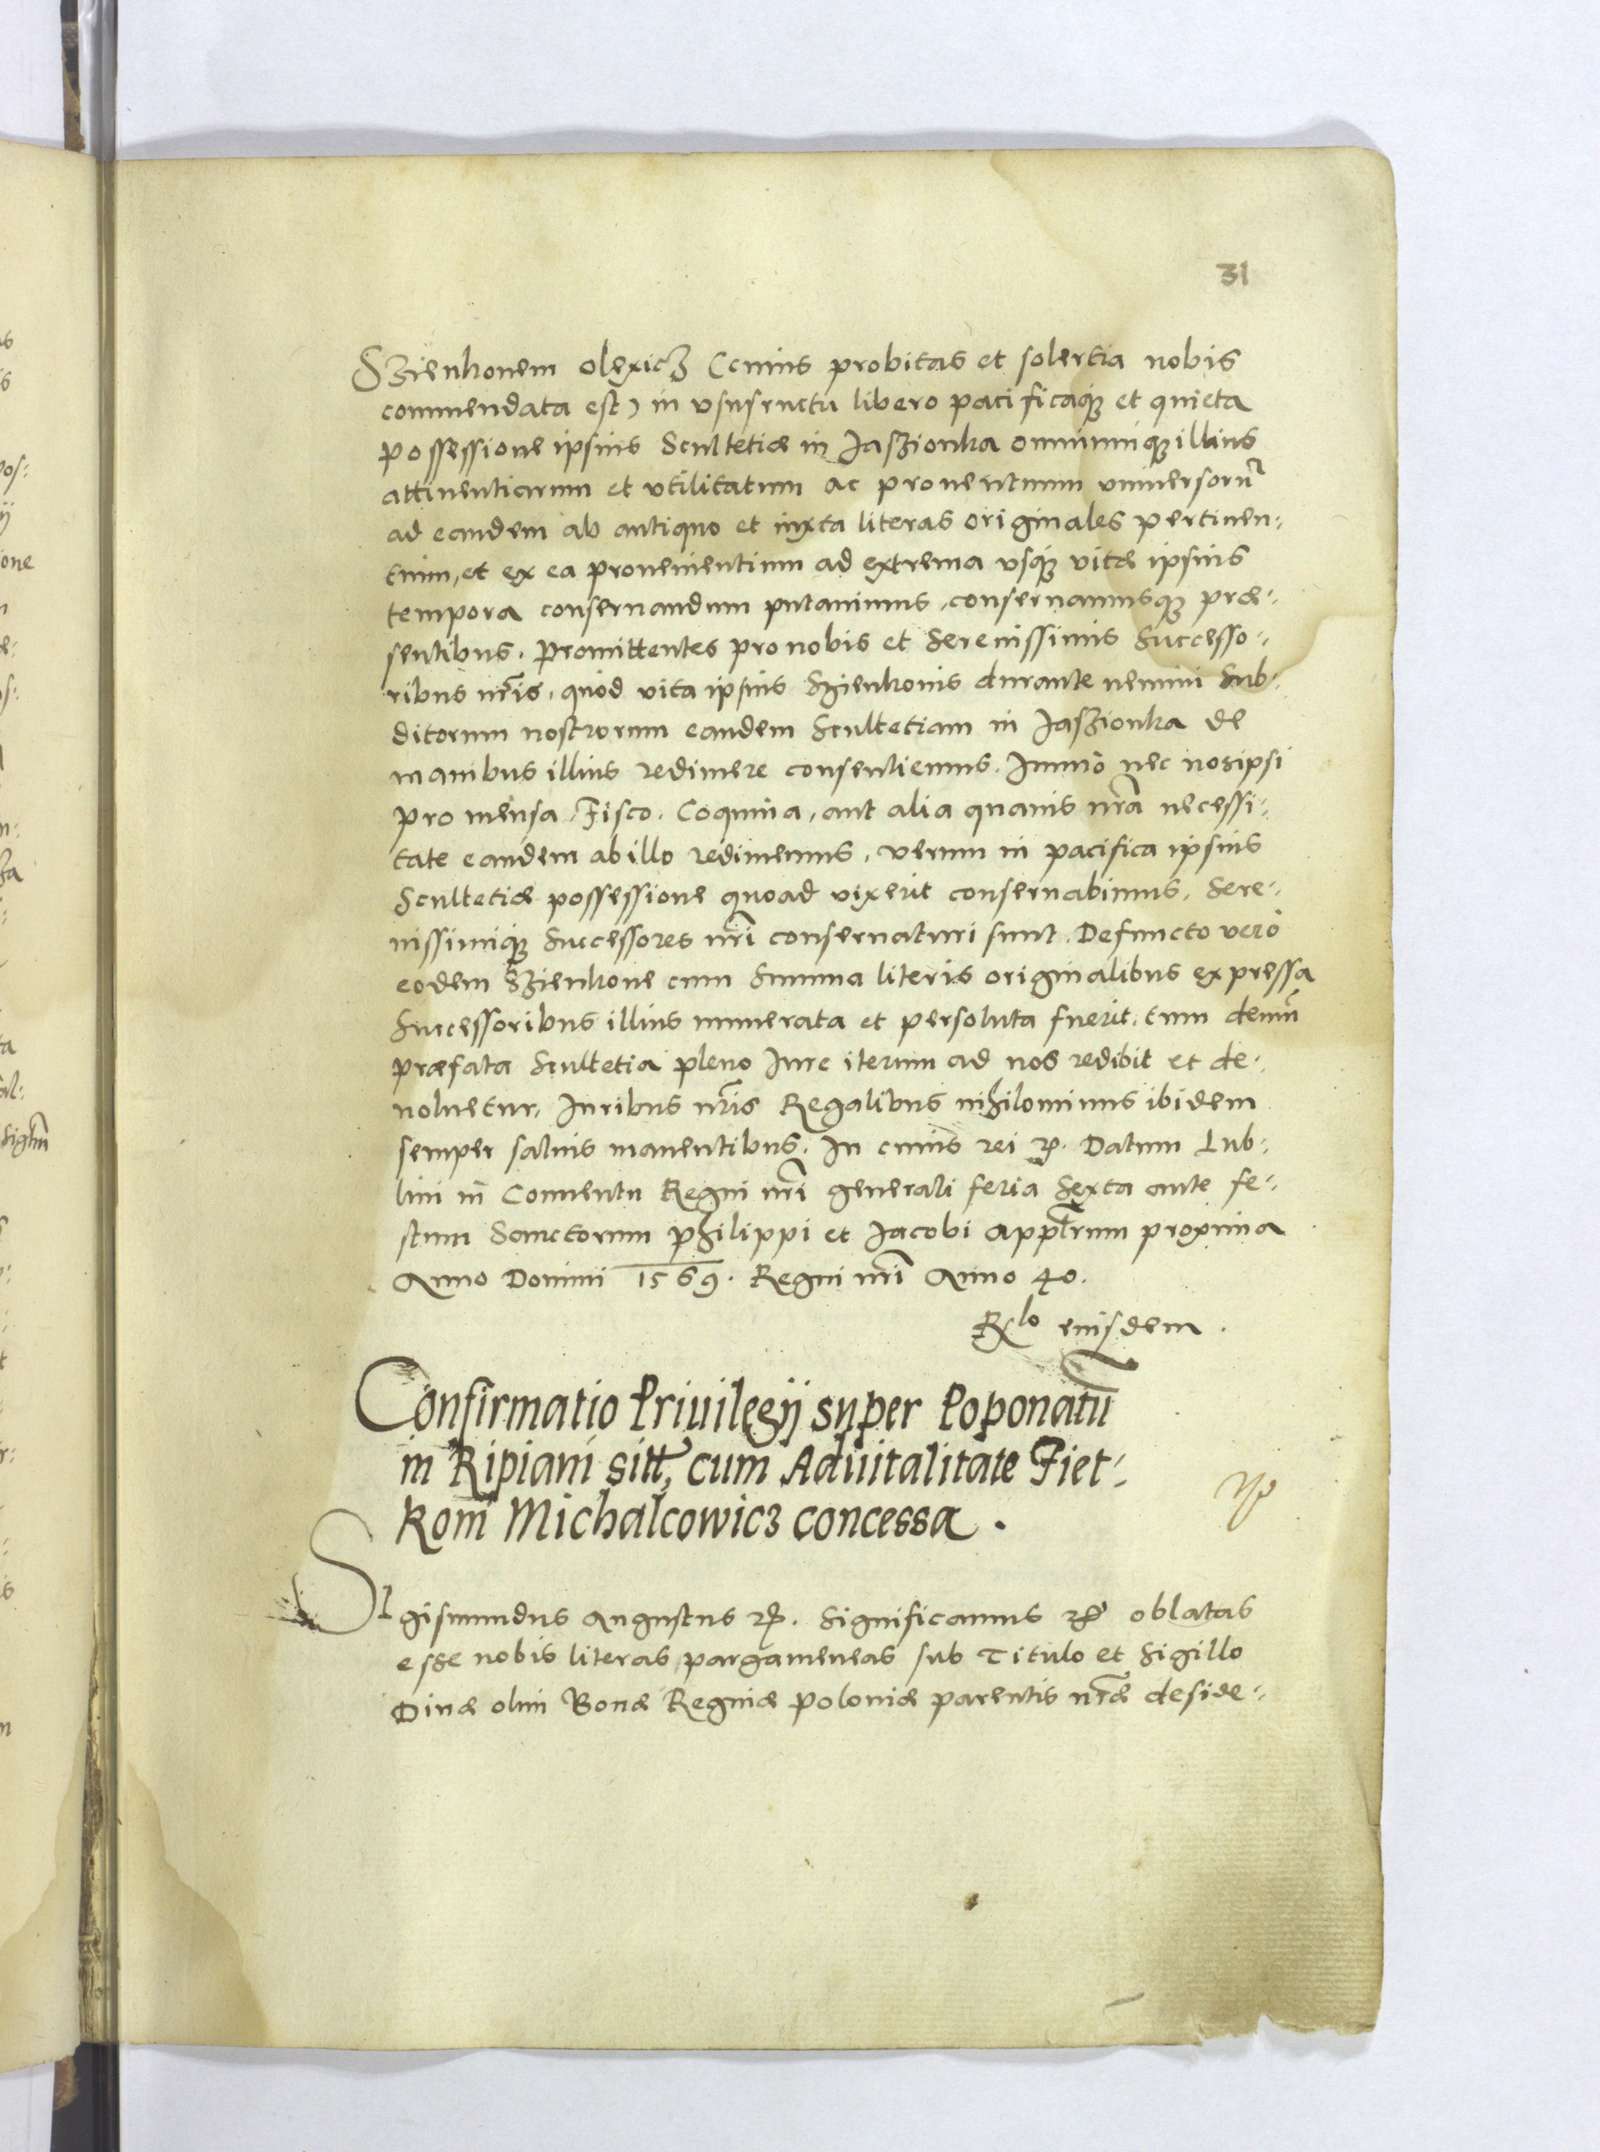 31
Szienkonem Olexicz (cuius probitas et solertia nobis
commendata est) in vsufructu libero pacificaq₃ et quieta
possessione ipsius Scultetiæ in Jaszionka omniumq₃ illius
attinentiarum et vtilitatum ac prouentuum vniuersorū
ad eandem ab antiquo et iuxta literas originales pertinen-
tium, et ex ea prouenientium ad extrema vsq₃ vitæ ipsius
tempora conseruandum putauimus, conseruamusq₃ præ-
sentibus. Promittentes pro nobis et Serenissimis Successo-
ribus nr̃is, quòd vita ipsius Szienkonis durante nemini Sub-
ditorum nostrorum eandem Scultetiam in Jaszionka de
manibus illius redimere consentiemus. Immò nec nos ipsi
pro mensa, Fisco, Coquina, aut alia quauis nr̃a necessi-
tate eandem ab illo redimemus, verum in pacifica ipsius
Scultetiæ possessione quoad vixerit conseruabimus, Sere-
nissimiq₃ Successores nr̃i conseruaturi sunt. Defuncto verò
eodem Szienkone cum Summa literis originalibus expressa
Successoribus illius numerata et persoluta fuerit, tum demū
præfata Scultetia pleno Iure iterum ad nos redibit et de-
uoluetur, Iuribus nr̃is Regalibus nihilominus ibidem
semper saluis manentibus. In cuius rei ꝛc. Datum Lub-
lini in Conuentu Regni nr̃i generali feria Sexta ante fe-
stum Sanctorum Philippi et Jacobi Appl̃rum proxima
Anno Domini 1569. Regni nr̃i Anno 40.
Rlo eiusdem.
Confirmatio Priuilegij super Poponatū
in Ripiani sitt, cum Aduitalitate Fiet-
koni Michalcowicz concessa.
Sigismundus Augustus ꝛc. Significamus ꝛc oblatas
esse nobis literas pargameneas sub Titulo et Sigillo
Diuæ olim Bonæ Reginæ Poloniæ parentis nr̃æ deside-